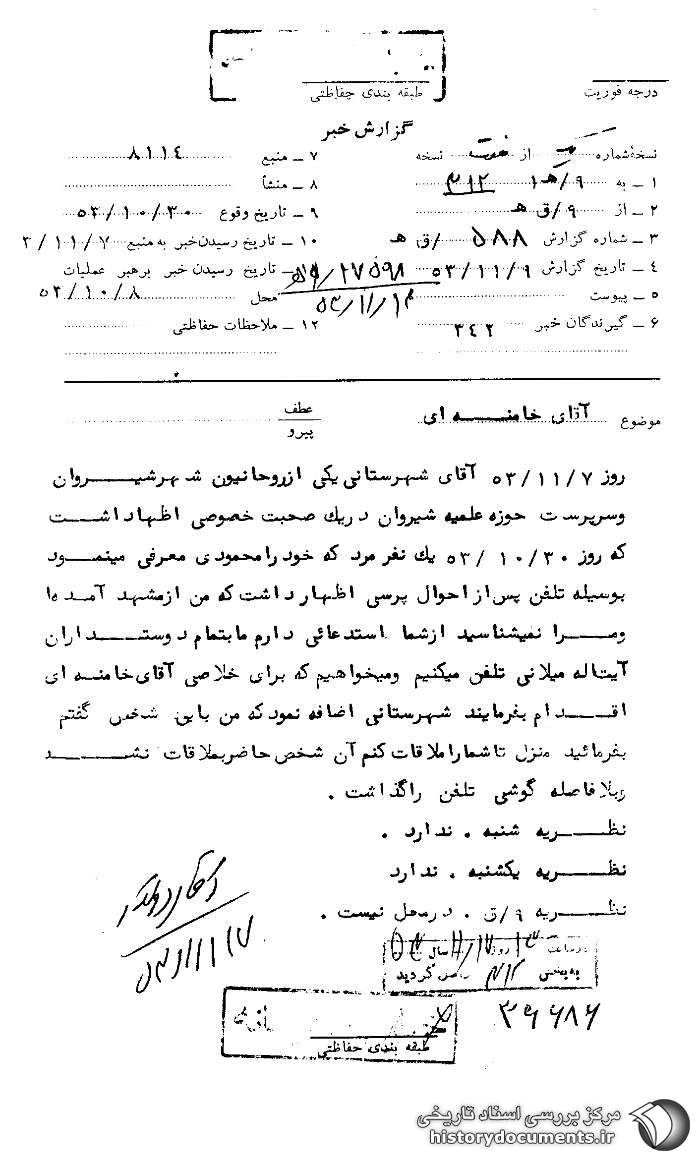 طبقه بندی حفاظتی
درجه فوریت
گزارش خبر
نسخهٔ شماره از هفت نسخه
۱ ـ به ۹/هـ ۱ ۳۱۲
۲ ـ از ۹/ق هـ
۳ ـ شماره گزارش ۵۸۸ /ق هـ
۴ ـ تاریخ گزارش ۵۳/۱۱/۹
۵ ـ پیوست
۶ ـ گیرندگان خبر ۳۴۲
۷ ـ منبع ۸۱۱۴
۸ ـ منشأ
۹ ـ تاریخ وقوع ۵۳/۱۰/۳۰
۱۰ ـ تاریخ رسیدن خبر به منبع ۳/۱۱/۷
تاریخ رسیدن خبر برهبر عملیات
محل ۵۳/۱۰/۸
۱۲ ـ ملاحظات حفاظتی
۵۳/۱۱/۱۳
موضوع آقای خامنـــه ای
عطف
پیرو
روز ۵۳/۱۱/۷ آقای شهرستانی یکی ازروحانیون شهرشیـــروان
وسرپرست حوزه علمیه شیروان دریك صحبت خصوصی اظهارداشت
که روز ۵۳/۱۰/۳۰ یك نفر مرد که خود رامحمودی معرفی مینمود
بوسیله تلفن پس از احوال پرسی اظهار داشت که من ازمشهد آمده‌ا
ومـــرا نمیشناسید ازشما استدعائی دارم مابتمام دوستـــداران
آیت‌اله میلانی تلفن میکنیم ومیخواهیم که برای خلاصی آقای خامنـه ای
اقـــدام بفرمایند شهرستانی اضافه نمود که من باین شخص گفتم
بفرمائید منزل تا شمارا ملاقات کنم آن شخص حاضر بملاقات نشـــد
وبلافاصله گوشی تلفن راگذاشت .
نظـــریه شنبه . ندارد .
نظـــریه یکشنبه . ندارد
نظـــریه ۹/ق . درمحل نیست .
۵۳/۱۱/۱۷
درساعت روز سال
به‌بخش ۳۱۲ گردید
۳۹۶۸۶
طبقه بندی حفاظتی
مرکز بررسی اسناد تاریخی
historydocuments.ir